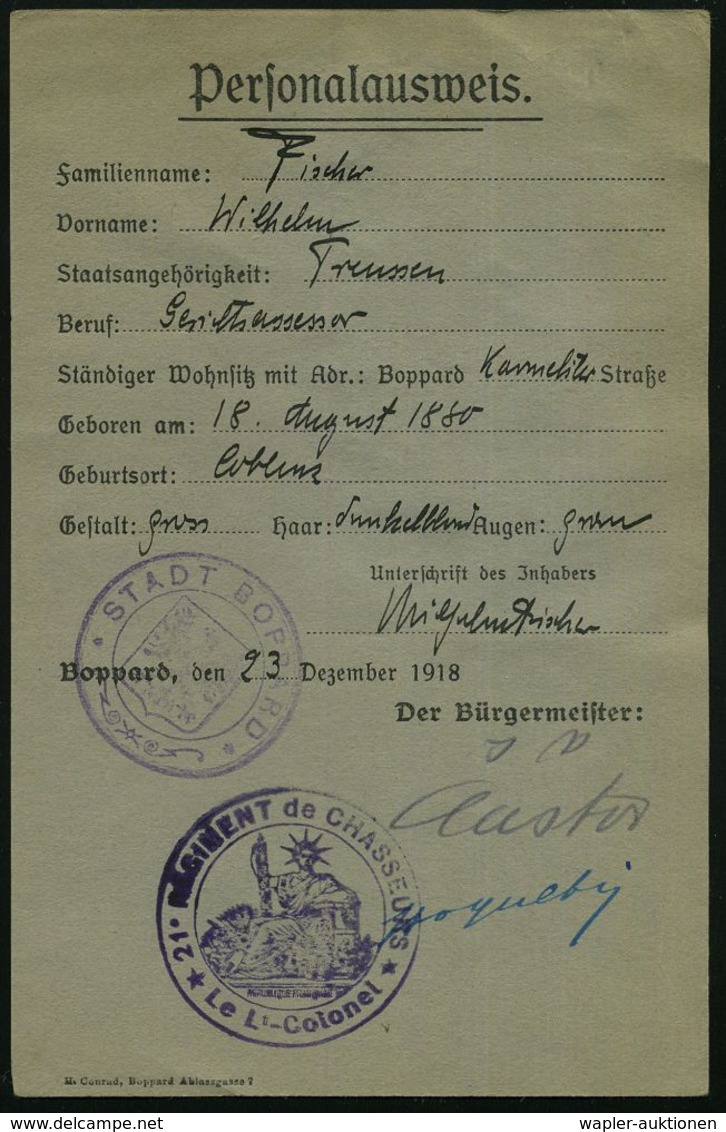 Personalausweis.
Familienname: Fischer
Vorname: Wilhelm
Staatsangehörigkeit: Preussen
Beruf: Gerichtsassessor
Ständiger Wohnsitz mit Adr.: Boppard Karmeliter Straße
Geboren am: 18. August 1880
Geburtsort: Coblenz
Gestalt: gross Haar: dunkelblond Augen: grau
Unterschrift des Inhabers
Wilhelm Fischer
STADT BOPPARD
Boppard, den 23 Dezember 1918
Der Bürgermeister:
21. RÉGIMENT de CHASSEURS
REPUBLIQUE FRANÇAISE
Le Lt-Colonel
H. Conrad, Boppard Ablassgasse 7
wapler-auktionen